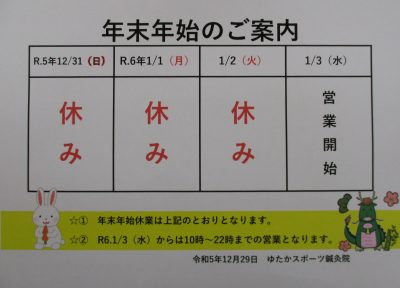 年末年始のご案内
R.5年12/31（日） R.6年1/1（月） 1/2（火） 1/3（水）
休み 休み 休み 営業開始
☆① 年末年始休業は上記のとおりとなります。
☆② R6.1/3（水）からは10時～22時までの営業となります。
令和5年12月29日 ゆたかスポーツ鍼灸院